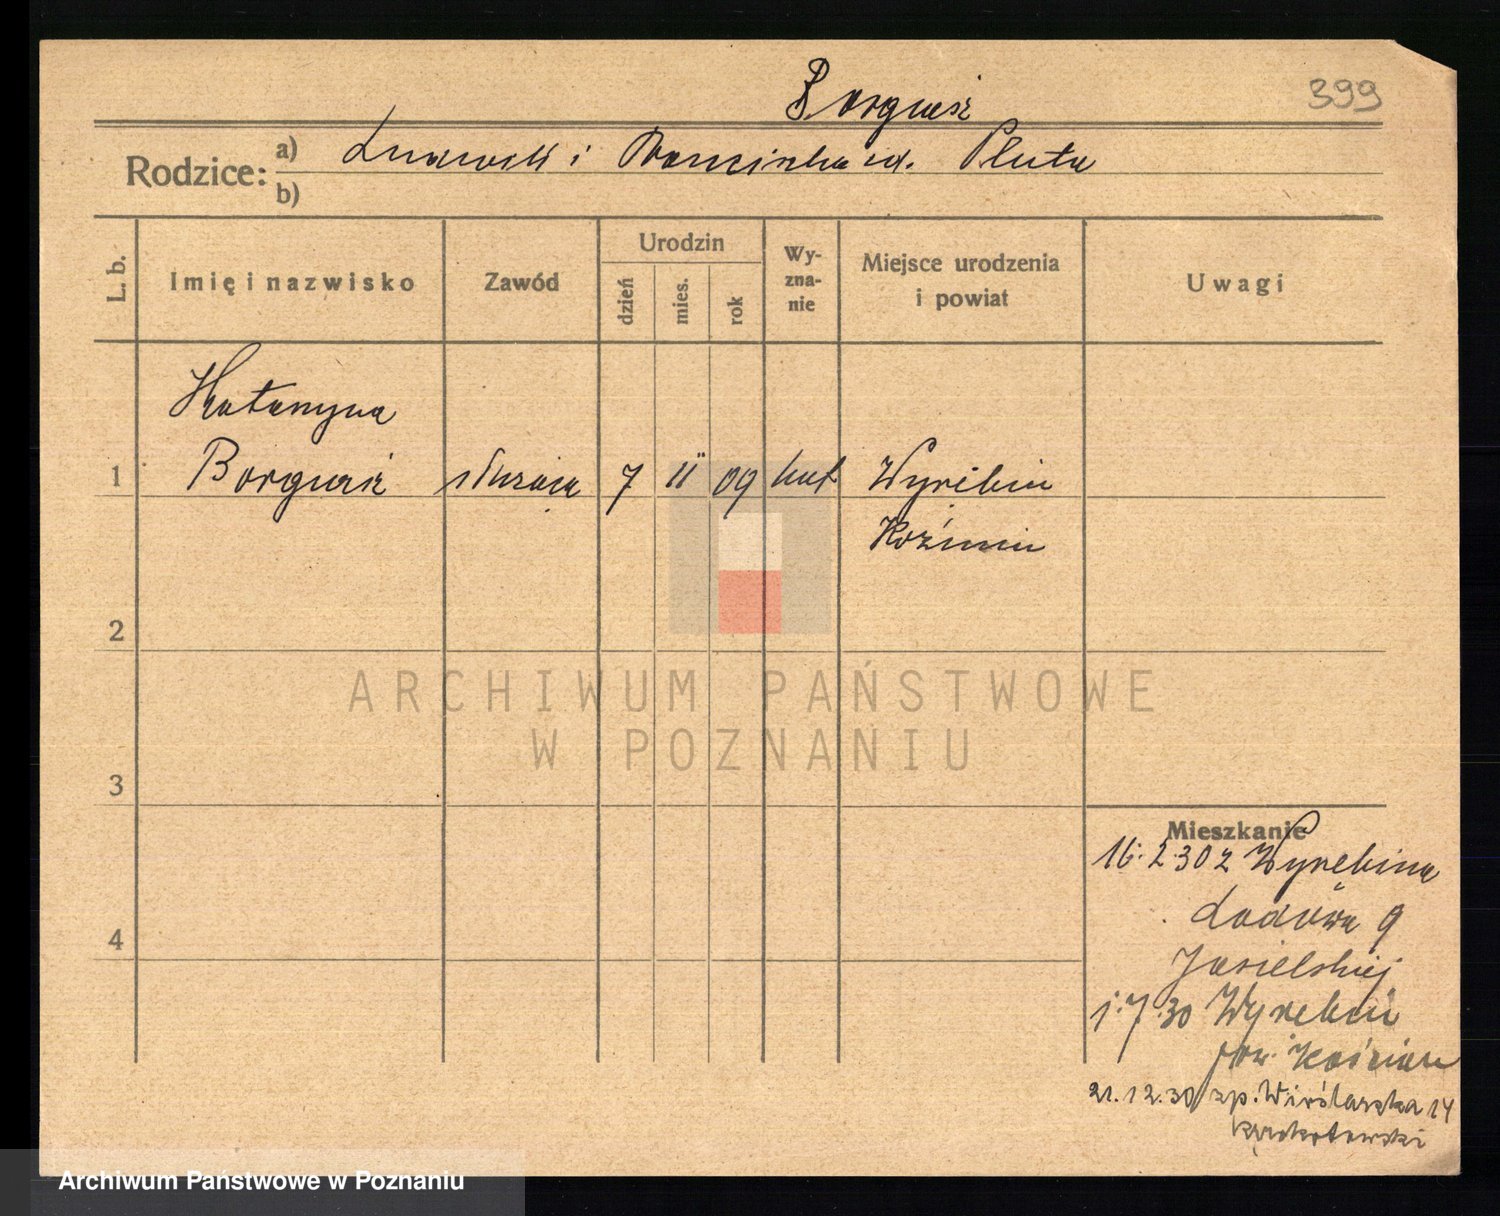 Borgusz
399
Rodzice:
a) Ludwik i Franciszka ud. Pluta
b)
L. b.
Imię i nazwisko
Zawód
Urodzin
dzień
mies.
rok
Wy-
zna-
nie
Miejsce urodzenia
i powiat
Uwagi
Katarzyna
1 Borgusz służąca 7 11 09 kat Wyrębin
Koźmin
2
3
4
Mieszkanie
16.2.30 z Wyrębina
9
1.7.30 Wyrębin
pow.
21.12.30 zp. Wioślarska 14
ARCHIWUM PAŃSTWOWE
W POZNANIU
Archiwum Państwowe w Poznaniu